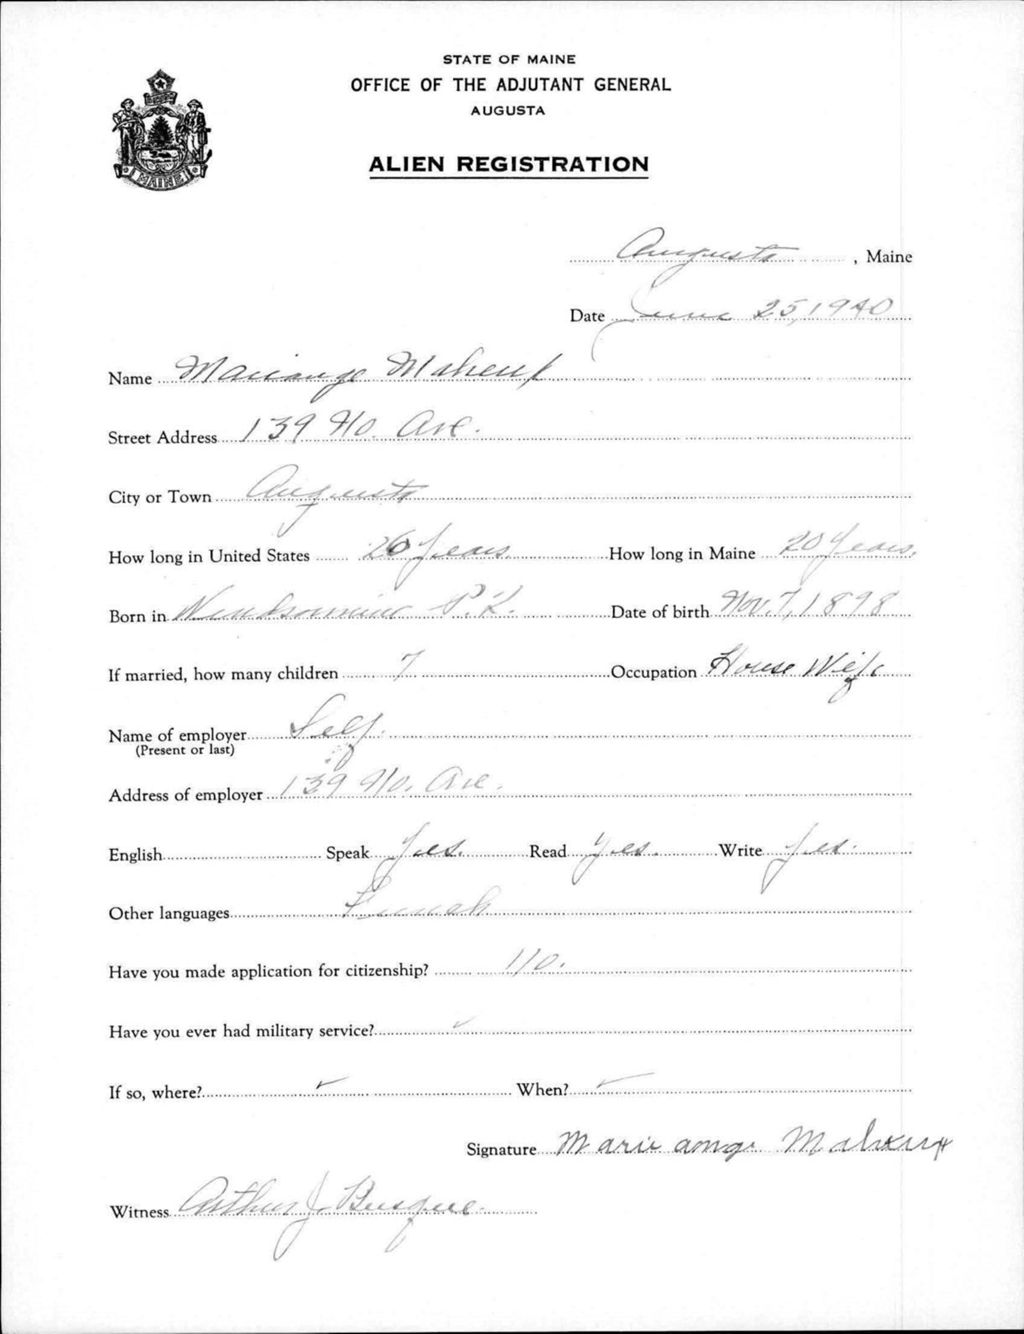 STATE OF MAINE
OFFICE OF THE ADJUTANT GENERAL
AUGUSTA
MAINE
ALIEN REGISTRATION
Augusta, Maine
Date June 25, 1940
Name Marieange Maheux
Street Address 139 No. Ave.
City or Town Augusta
How long in United States 26 years How long in Maine 20 years.
Born in P.Q. Date of birth Nov. 7, 1898
If married, how many children 7 Occupation House Wife
Name of employer Self
(Present or last)
Address of employer 139 No. Ave.
English Speak yes. Read yes. Write yes.
Other languages French
Have you made application for citizenship? No.
Have you ever had military service? ✓
If so, where? ✓ When? ✓
Signature Marie ange Maheux
Witness Arthur J.